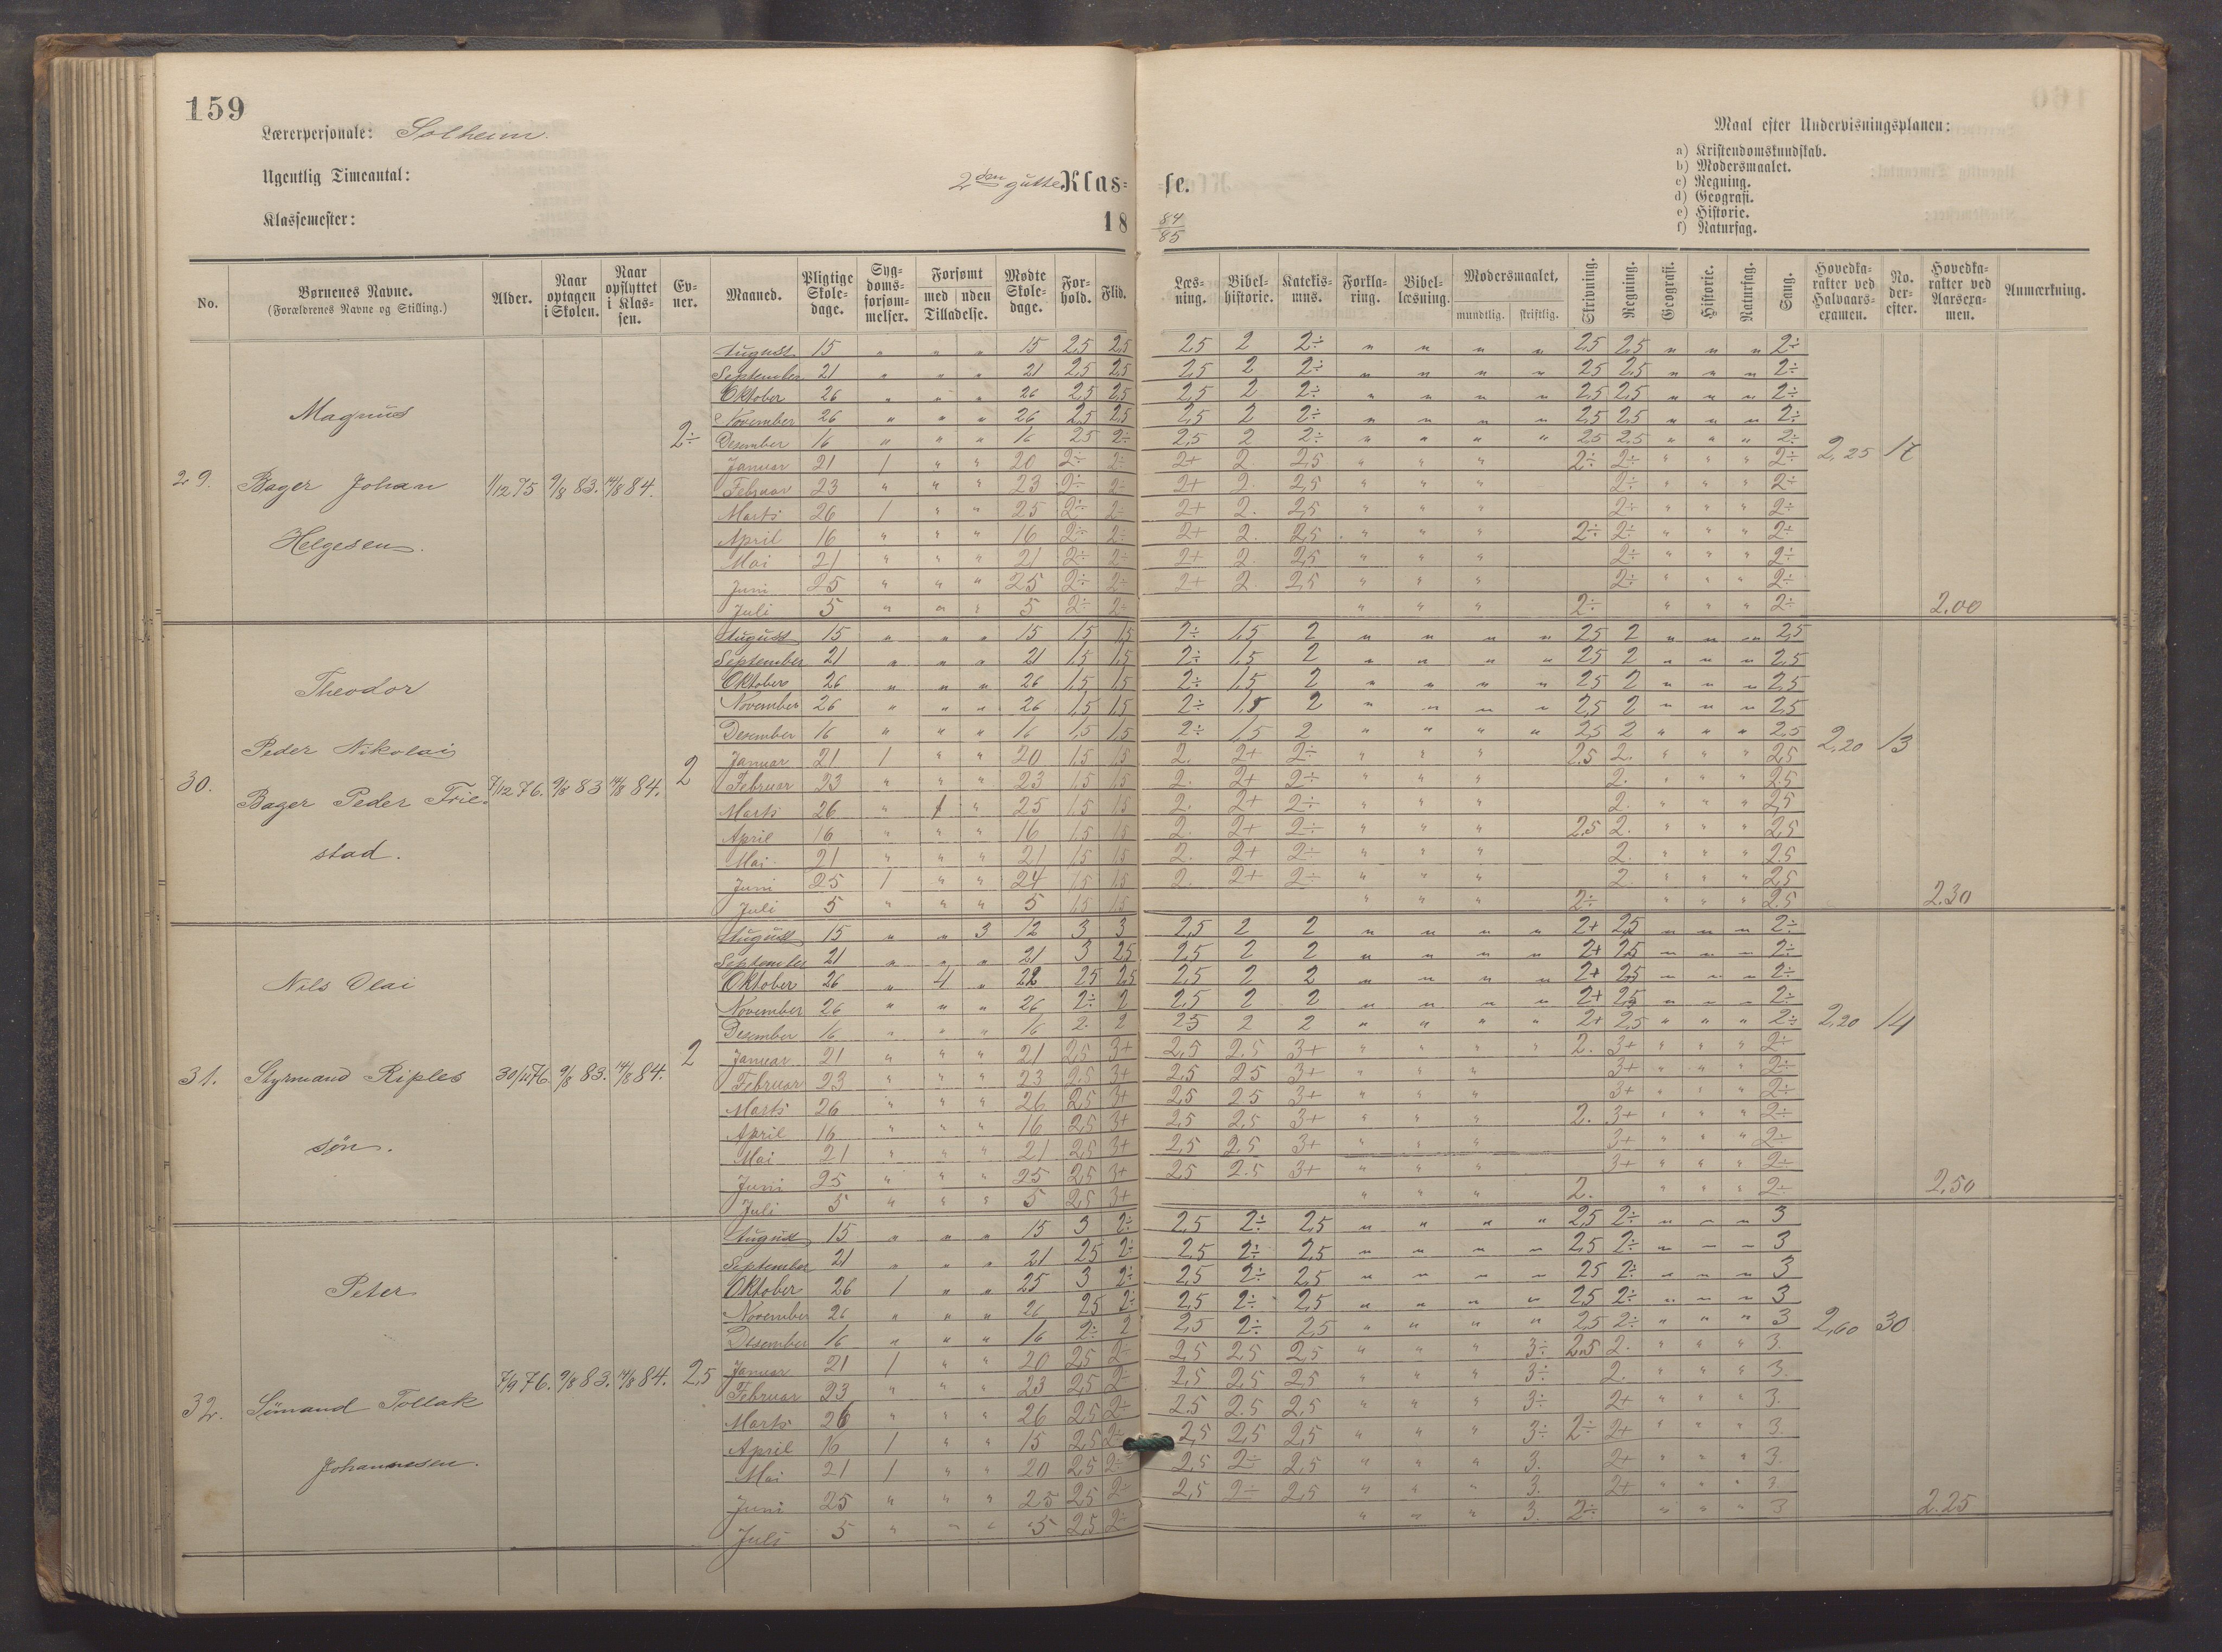 159
Lærerpersonale: Solheim.
Ugentlig Timeantal:
Klassemester:
2den gutte Klas= se.
18 84/85
Maal efter Undervisningsplanen:
a) Kristendomskundskab.
b) Modersmaalet.
c) Regning.
d) Geografi.
e) Historie.
f) Naturfag.
No. Børnenes Navne. (Forældrenes Navne og Stilling.) Alder. Naar optagen i Skolen. Naar opflyttet i Klassen. Evner. Maaned. Pligtige Skoledage. Sygdomsforsømmelser. Forsømt med uden Tilladelse. Mødte Skoledage. Forhold. Flid. Læsning. Bibelhistorie. Katekismus. Forklaring. Bibellæsning. Modersmaalet, mundtlig. skriftlig. Skrivning. Regning. Geografi. Historie. Naturfag. Sang. Hovedkarakter ved Halvaarsexamen. No. derefter. Hovedkarakter ved Aarsexamen. Anmærkning.
29. Magnus
Bager Johan
Helgesen.
1/12 75 9/8 83. 14/8 84. 2÷
August 15 " " " 15 2,5 2,5 2,5 2 2÷ " " " " 2,5 2,5 " " " 2÷
September 21 " " " 21 2,5 2,5 2,5 2 2÷ " " " " 2,5 2,5 " " " 2÷
Oktober 26 " " " 26 2,5 2,5 2,5 2 2÷ " " " " 2,5 2,5 " " " 2÷
November 26 " " " 26 2,5 2,5 2,5 2 2÷ " " " " 2,5 2,5 " " " 2÷
Desember 16 " " " 16 2,5 2÷ 2,5 2 2÷ " " " " 2,5 2,5 " " " 2÷ 2,25 17
Januar 21 1 " " 20 2÷ 2÷ 2+ 2. 2,5 " " " 2÷ 2÷ " " " 2÷
Februar 23 " " " 23 2÷ 2÷ 2+ 2. 2,5 " " " 2÷ " " " 2÷
Marts 26 1 " " 25 2÷ 2÷ 2+ 2. 2,5 " " " 2÷ " " " 2÷
April 16 " " " 16 2÷ 2÷ 2+ 2. 2,5 " " " 2÷ 2÷ " " " 2÷
Mai 21 " " " 21 2÷ 2÷ 2+ 2. 2,5 " " " 2÷ " " " 2÷
Juni 25 " " " 25 2÷ 2÷ 2+ 2. 2,5 " " " 2÷ " " " 2÷
Juli 5 " " " 5 2÷ 2÷ " " " 2÷ " " " 2÷ 2,00
30. Theodor
Peder Nikolai
Bager Peder Frie-
stad.
7/12 76. 9/8 83 14/8 84. 2
August 15 " " " 15 1,5 1,5 2÷ 1,5 2 " " " " 2,5 2 " " " 2,5
September 21 " " " 21 1,5 1,5 2÷ 1,5 2 " " " " 2,5 2 " " " 2,5
Oktober 26 " " " 26 1,5 1,5 2÷ 1,5 2 " " " " 2,5 2 " " " 2,5
November 26 " " " 26 1,5 1,5 2÷ 1,5 2 " " " " 2,5 2 " " " 2,5
Desember 16 " " " 16 1,5 1,5 2÷ 1,5 2 " " " " 2,5 2 " " " 2,5 2,20 13
Januar 21 1 " " 20 1,5 1,5 2. 2+ 2÷ " " " 2,5 2. " " " 2,5
Februar 23 " " " 23 1,5 1,5 2. 2+ 2÷ " " " 2. " " " 2,5
Marts 26 " 1 " 25 1,5 1,5 2. 2+ 2÷ " " " 2. " " " 2,5
April 16 " " " 16 1,5 1,5 2. 2+ 2÷ " " " 2,5 2. " " " 2,5
Mai 21 " " " 21 1,5 1,5 2. 2+ 2÷ " " " 2. " " " 2,5
Juni 25 1 " " 24 1,5 1,5 2. 2+ 2÷ " " " 2. " " " 2,5
Juli 5 " " " 5 1,5 1,5 " " " 2÷ " " " 2,5 2.30
31. Nils Olai
Styrmand Riples
søn.
30/11 76. 9/8 83. 14/8 84. 2
August 15 " " 3 12 3 3 2,5 2 2 " " " " 2+ 2,5 " " " 2÷
September 21 " " " 21 3 2,5 2,5 2 2 " " " " 2+ 2,5 " " " 2÷
Oktober 26 " 4 " 22 2,5 2,5 2,5 2 2 " " " " 2+ 2,5 " " " 2÷
November 26 " " " 26 2÷ 2 2,5 2 2 " " " " 2+ 2,5 " " " 2÷
Desember 16 " " " 16 2. 2 2,5 2 2 " " " " 2+ 2,5 " " " 2÷ 2,20 14
Januar 21 " " " 21 2,5 3+ 2,5 2.5 3+ " " " " 2. 3+ " " " 2÷
Februar 23 " " " 23 2,5 3+ 2,5 2,5 3+ " " " 3+ " " " 2÷
Marts 26 " " " 26 2,5 3+ 2,5 2,5 3+ " " " 3+ " " " 2÷
April 16 " " " 16 2,5 3+ 2,5 2,5 3+ " " " 2. 3+ " " " 2÷
Mai 21 " " " 21 2,5 3+ 2,5 2,5 3+ " " " 3+ " " " 2÷
Juni 25 " " " 25 2,5 3+ 2,5 2.5 3+ " " " 3+ " " " 2÷
Juli 5 " " " 5 2,5 3+ " " " 2. " " " 2÷ 2,50
32. Peter
Sømand Tollak
Johannesen.
7/9 76. 9/8 83. 14/8 84. 2,5
August 15 " " " 15 3 2÷ 2,5 2÷ 2,5 " " " " 2,5 2÷ " " " 3
September 21 " " " 21 2,5 2÷ 2,5 2÷ 2,5 " " " " 2,5 2÷ " " " 3
Oktober 26 1 " " 25 3 2÷ 2,5 2÷ 2,5 " " " " 2,5 2÷ " " " 3
November 26 " " " 26 2,5 2÷ 2,5 2÷ 2,5 " " " " 2,5 2÷ " " " 3
Desember 16 " " " 16 2÷ 2 2,5 2÷ 2,5 " " " " 2,5 2÷ " " " 3 2,60 30
Januar 21 1 " " 20 2,5 2÷ 2,5 2,5 2,5 " " " 3÷ 2,5 2. " " " 3.
Februar 23 " " " 23 2,5 2÷ 2,5 2,5 2,5 " " " 3÷ 2. " " " 3.
Marts 26 " " " 26 2,5 2÷ 2.5 2.5 2,5 " " " 3÷ 2+ " " " 3.
April 16 1 " " 15 2,5 2÷ 2,5 2,5 2,5 " " " 3÷ 2÷ 2+ " " " 3.
Mai 21 1 " " 20 2,5 2÷ 2,5 2÷ 2,5 " " " 3. 2+ " " " 3.
Juni 25 " " " 25 2,5 2÷ 2,5 2÷ 2,5 " " " 3. 2+ " " " 3
Juli 5 " " " 5 2,5 2÷ " " " 3. 2÷ " " " 3 2.25